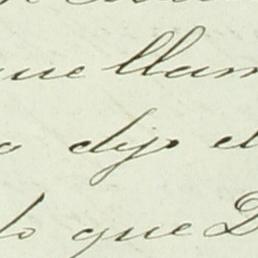 que llam
dijo el
lo que D